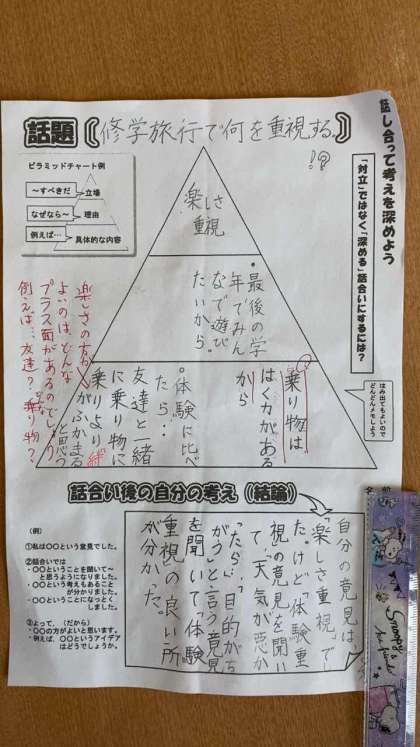 話し合って考えを深めよう
「対立」ではなく「深める」話合いにするには？
話題
修学旅行で何を重視する。
!?
ピラミッドチャート例
～すべきだ
立場
なぜなら～
理由
例えば…
具体的な内容
楽しさ
重視
・最後の学
年でみん
なで遊び
たいから。
はみ出てもよいので
どんどんメモしよう
乗り物は
はく力がある
から
・体験に比べ
たら…
友達と一緒
に乗り物に
乗りより絆
がふかまる
と思う
楽しさの方が
よいのは、どんな
プラス面があるのでしょう
例えば…友達？乗り物？
話合い後の自分の考え（結論）
自分の意見は、
「楽しさ重視」で
た。けど「体験重
視」の意見を聞い
て、「天気が悪か
ったら…「目的がち
がう」と言う意見
を聞いて体験
重視の良い所
が分かった。
(例)
①私は〇〇という意見でした。
②話合いでは
・〇〇ということを聞いて～
と思うようになりました。
・〇〇という考えもあること
が分かりました。
・〇〇ということになっとく
しました。
③よって、（だから）
・〇〇の方がよいと思います。
・例えば、〇〇というアイデア
はどうでしょうか。
Snoopy &
his friend